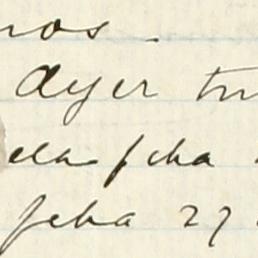 nos.
Ayer tu
ela fcha
fcha 27